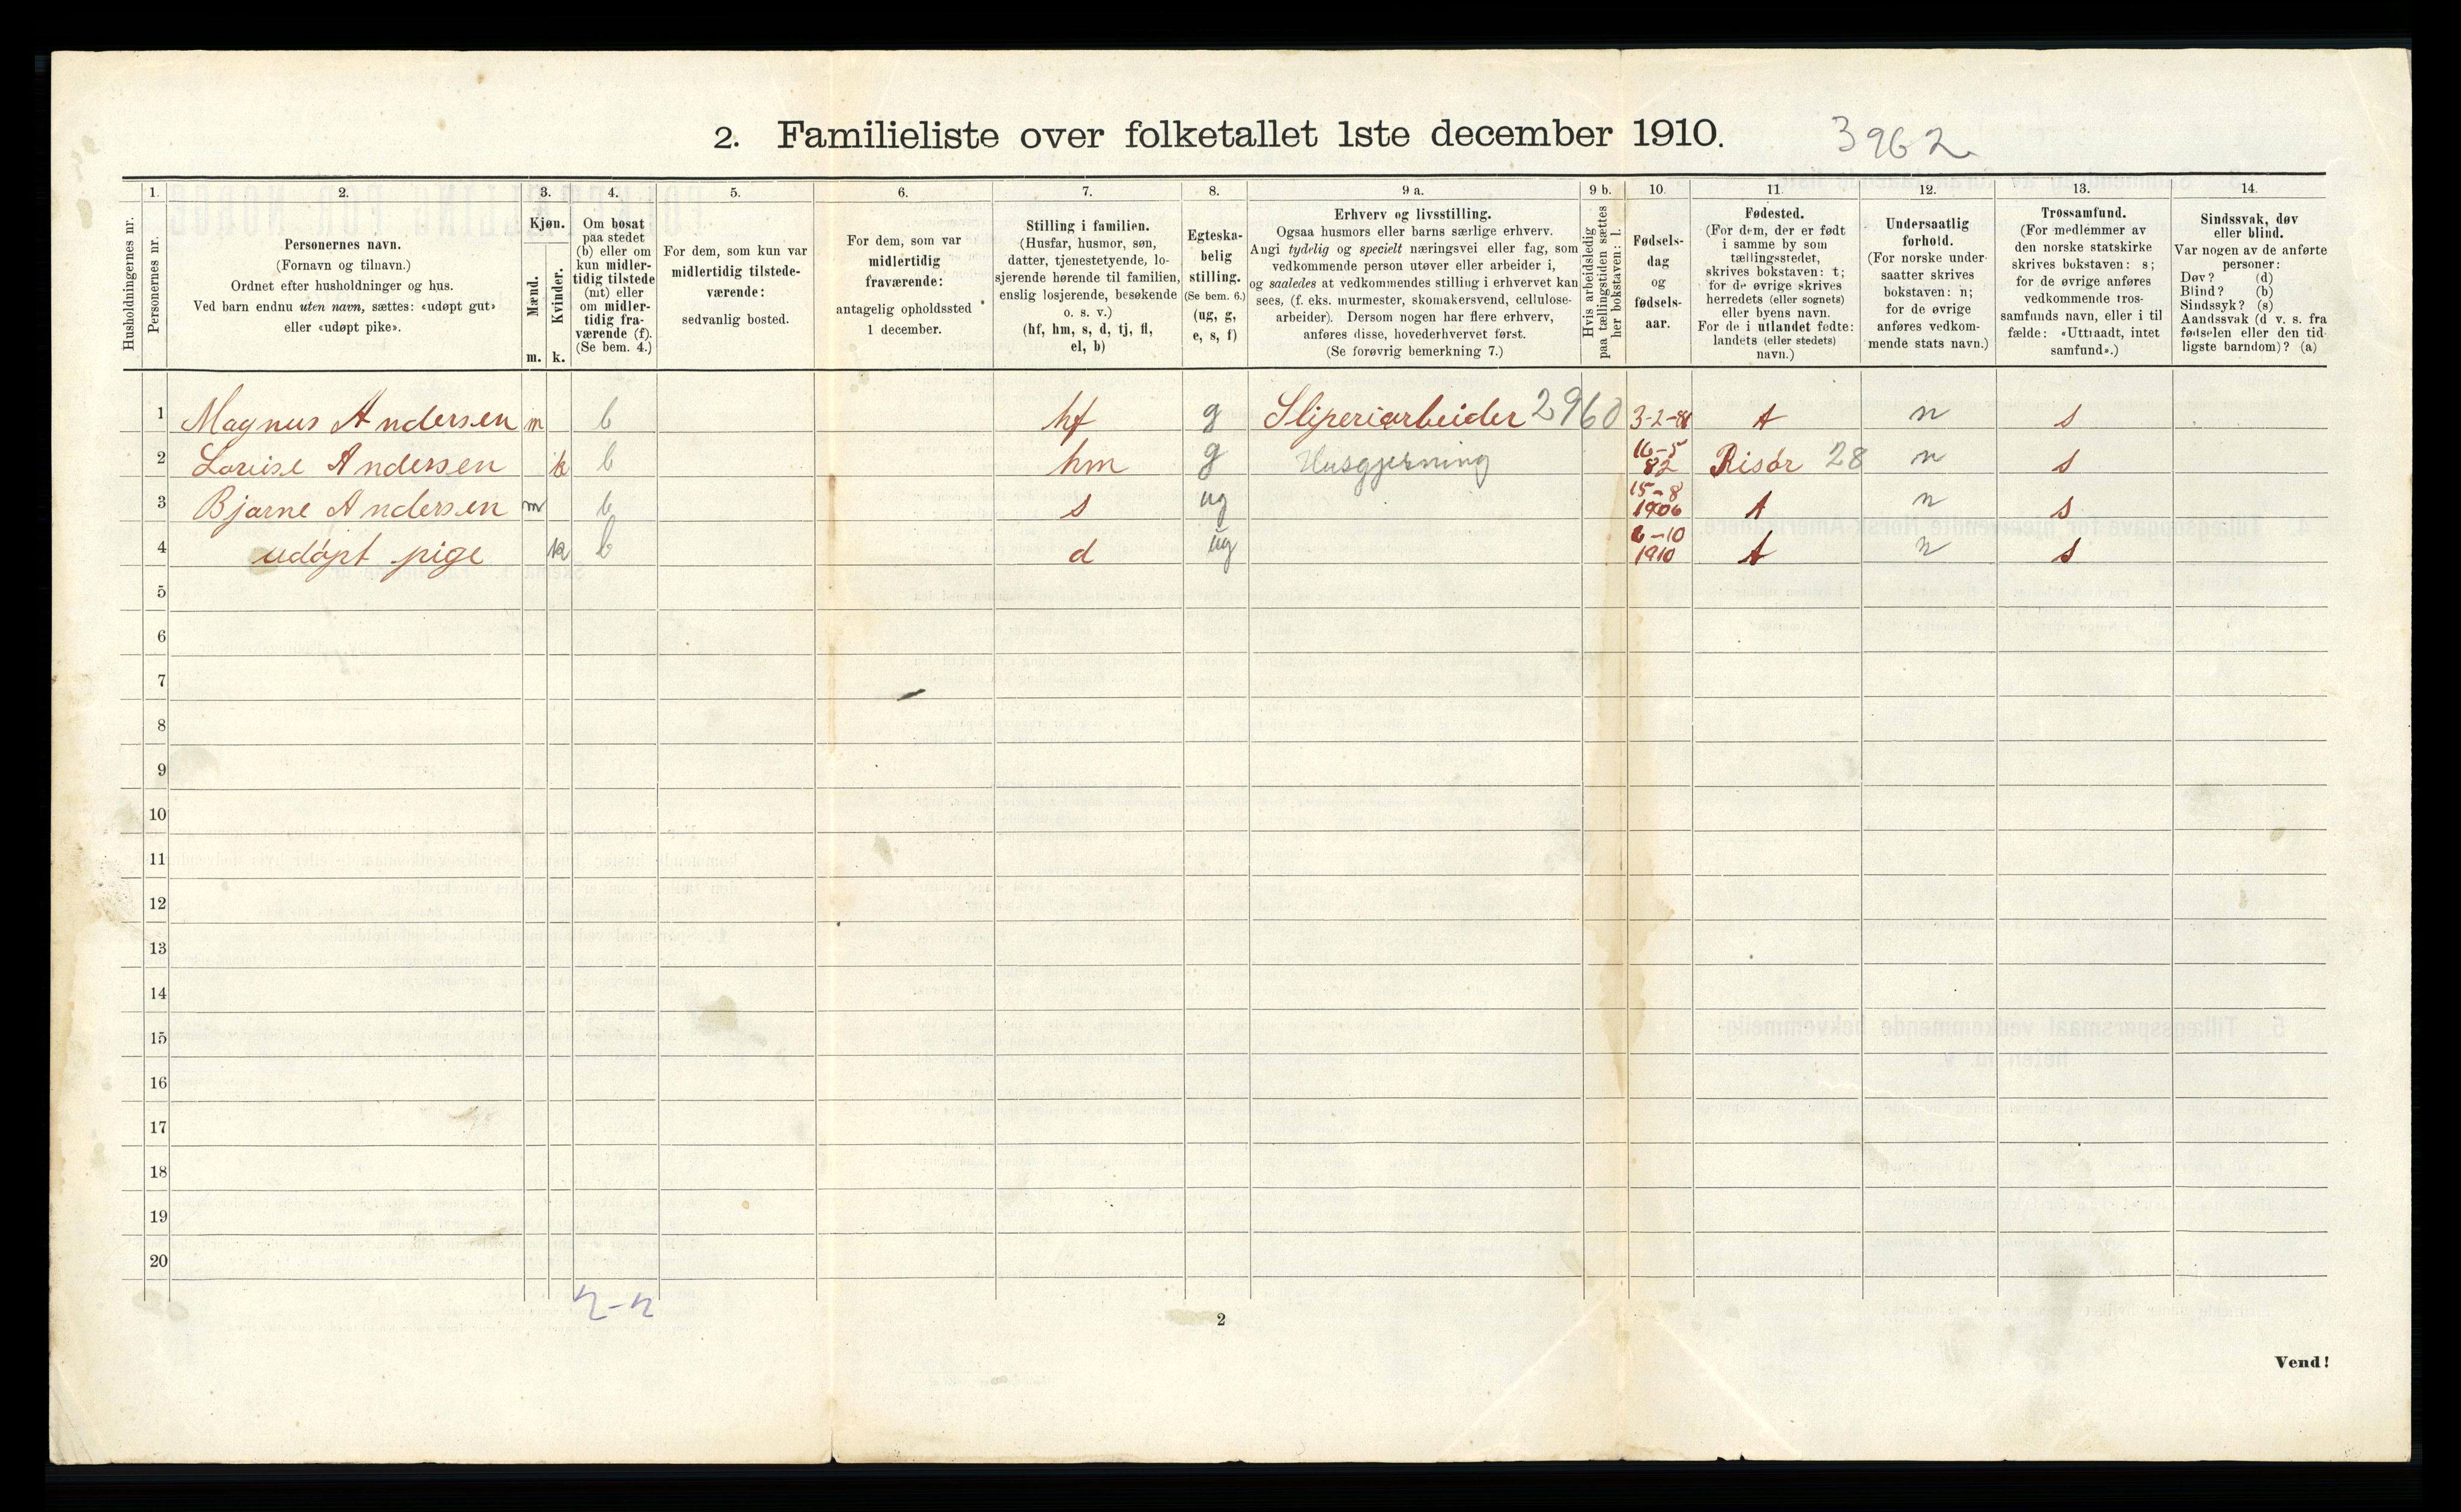 2. Familieliste over folketallet 1ste december 1910. 3962
Husholdningernes nr.
1.
Personernes nr.
2.
Personernes navn.
(Fornavn og tilnavn.)
Ordnet efter husholdninger og hus.
Ved barn endnu uten navn, sættes: «udøpt gut»
eller «udøpt pike».
3.
Kjøn.
Mænd.
Kvinder.
m. k.
4.
Om bosat
paa stedet
(b) eller om
kun midler-
tidig tilstede
(mt) eller
om midler-
tidig fra-
værende (f).
(Se bem. 4.)
5.
For dem, som kun var
midlertidig tilstede-
værende:
sedvanlig bosted.
6.
For dem, som var
midlertidig
fraværende:
antagelig opholdssted
1 december.
7.
Stilling i familien.
(Husfar, husmor, søn,
datter, tjenestetyende, lo-
sjerende hørende til familien,
enslig losjerende, besøkende
o. s. v.)
(hf, hm, s, d, tj, fl,
el, b)
8.
Egteska-
belig
stilling.
(Se bem. 6.)
(ug, g,
e, s, f)
9 a.
Erhverv og livsstilling.
Ogsaa husmors eller barns særlige erhverv.
Angi tydelig og specielt næringsvei eller fag, som
vedkommende person utøver eller arbeider i,
og saaledes at vedkommendes stilling i erhvervet kan
sees, (f. eks. murmester, skomakersvend, cellulose-
arbeider). Dersom nogen har flere erhverv,
anføres disse, hovederhvervet først.
(Se forøvrig bemerkning 7.)
9 b.
Hvis arbeidsledig
paa tællingstiden sættes
her bokstaven: l.
10.
Fødsels-
dag
og
fødsels-
aar.
11.
Fødested.
(For dem, der er født
i samme by som
tællingsstedet,
skrives bokstaven: t;
for de øvrige skrives
herredets (eller sognets)
eller byens navn.
For de i utlandet fødte:
landets (eller stedets)
navn.)
12.
Undersaatlig
forhold.
(For norske under-
saatter skrives
bokstaven: n;
for de øvrige
anføres vedkom-
mende stats navn.)
13.
Trossamfund.
(For medlemmer av
den norske statskirke
skrives bokstaven: s;
for de øvrige anføres
vedkommende tros-
samfunds navn, eller i til
fælde: «Uttraadt, intet
samfund».)
14.
Sindssvak, døv
eller blind.
Var nogen av de anførte
personer:
Døv? (d)
Blind? (b)
Sindssyk? (s)
Aandssvak (d v. s. fra
fødselen eller den tid-
ligste barndom)? (a)
1 Magnus Andersen m b hf g Sliperiarbeider 2960 3-2- t n s
2 Louise Andersen k b hm g Husgjerning 16-5 82 Risør 28 n s
3 Bjarne Andersen m b s ug 15-8 1906 t n s
4 udøpt pige k b d ug 6-10 1910 t n s
5
6
7
8
9
10
11
12
13
14
15
16
17
18
19
20
2-2
2
Vend!